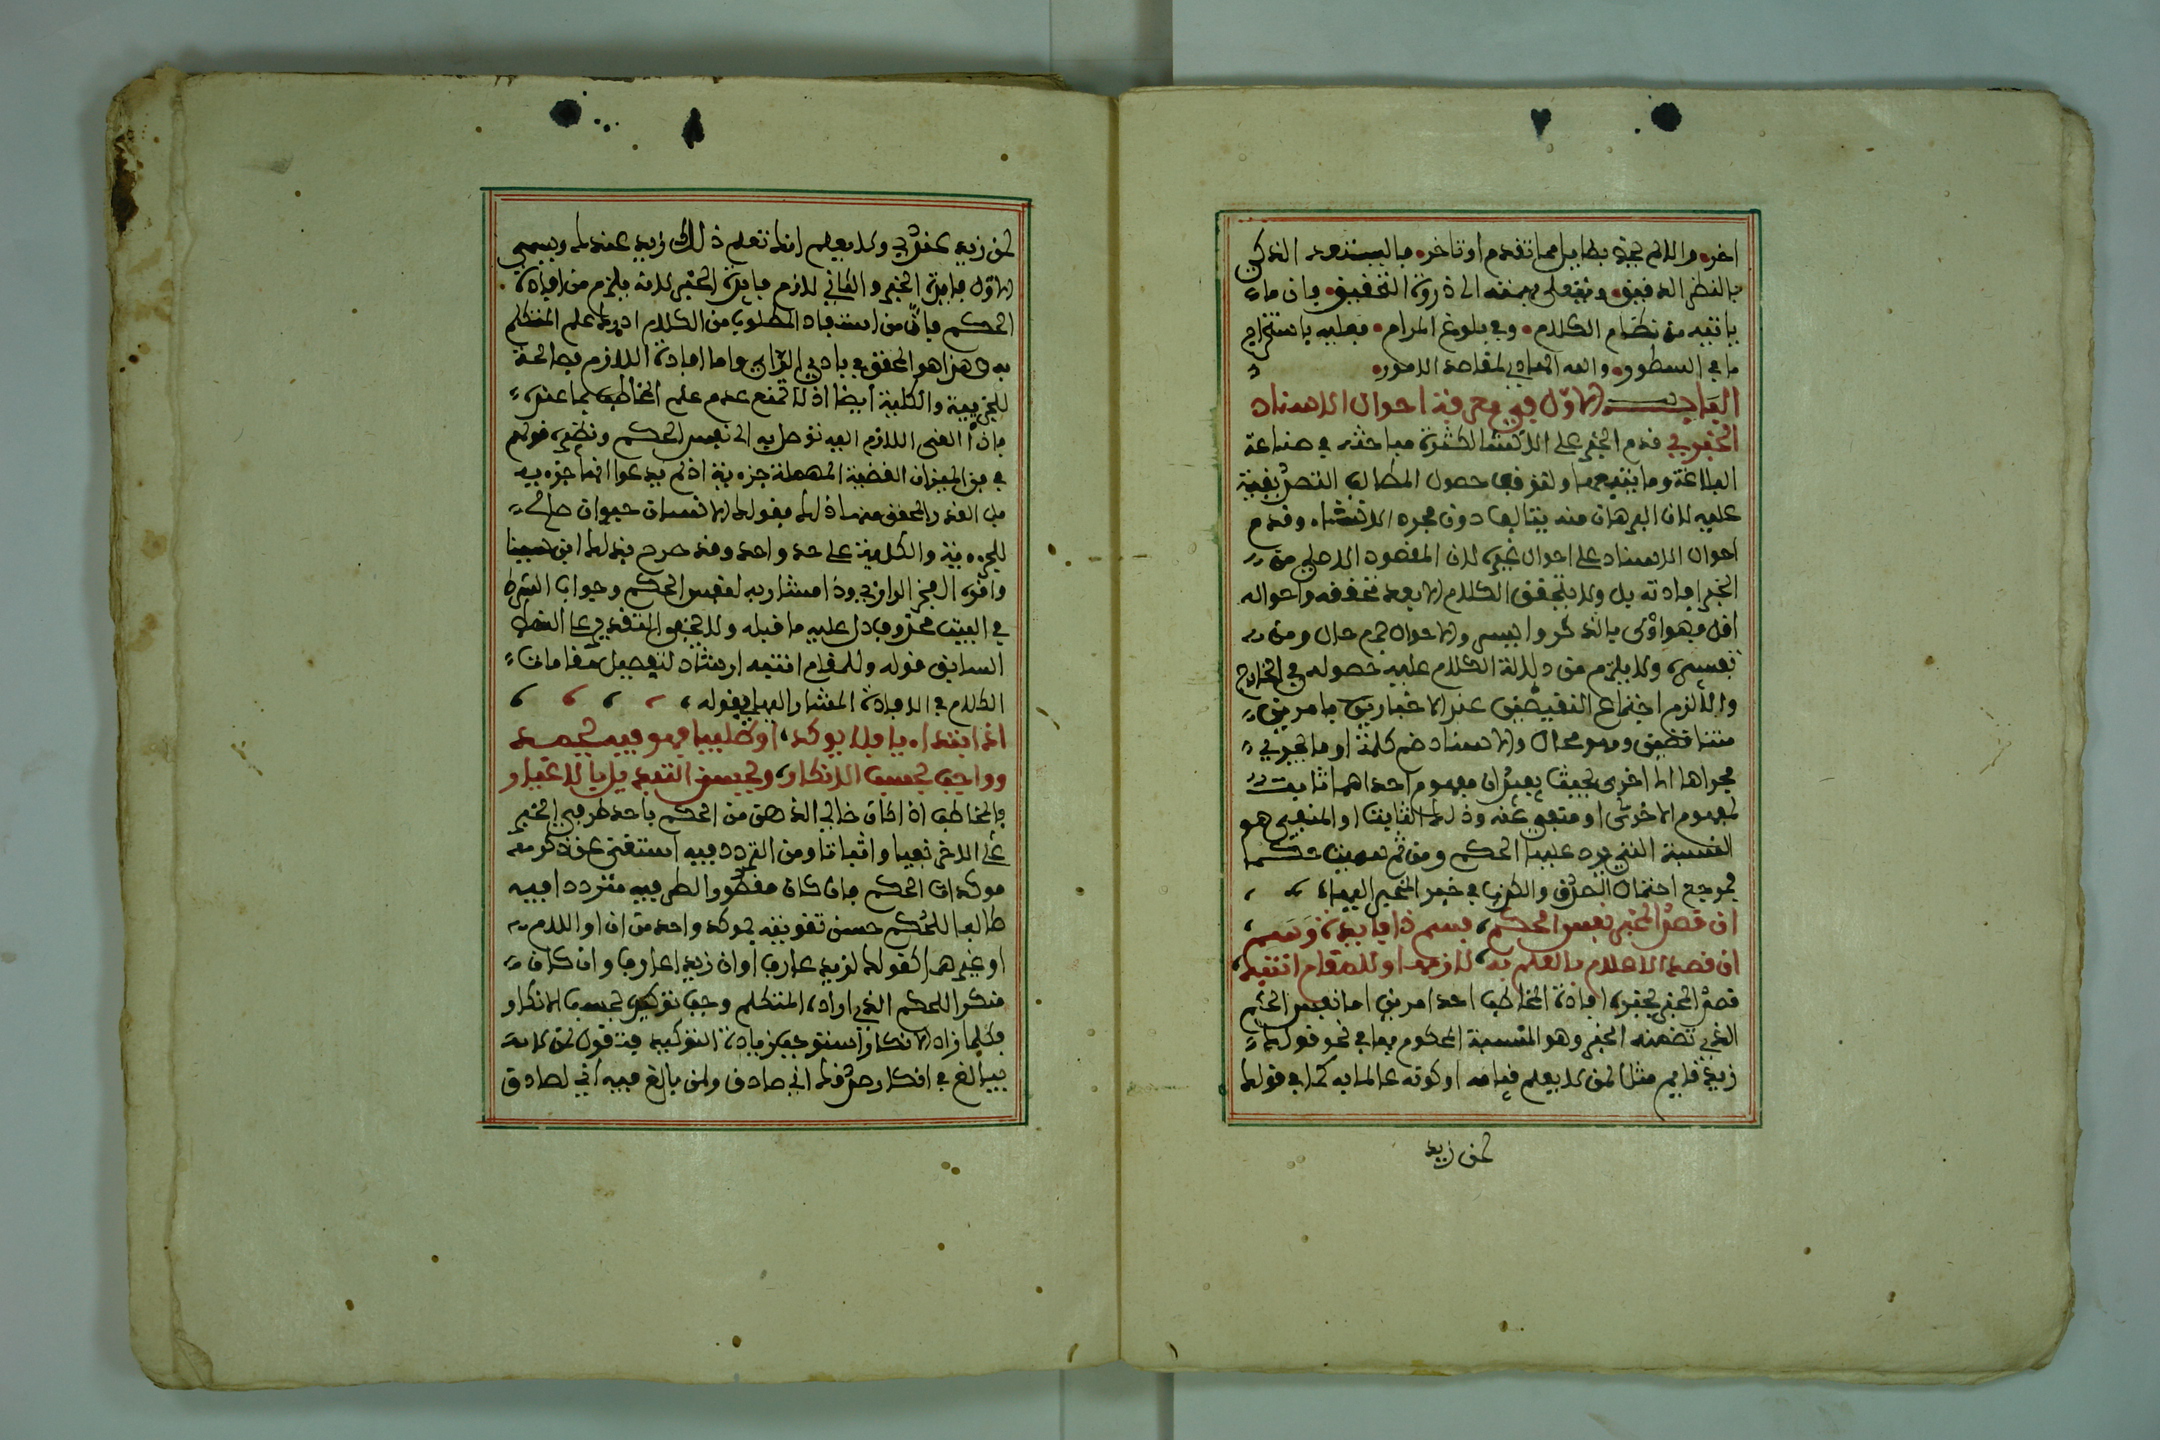 اخر والله لم يحظ بطايل مما تقدم او تاخر فاليستعد الذكي
بالنظر الدقيق وليعلي همته الى ذروة التحقيق فان ما
ياتيه من نظام الكلام وفي بلوغ المرام فعليه باستخراج
ما في السطور والله الهادي لمقاصد الامور
الباب الاول في معرفة احوال الاسناد
الخبري قدم الخبر على الانشا لكثرة مباحثه في صناعة
البلاغة وما يتبعها ولتوقف حصول المطالب التصديقية
عليه لان البرهان منه يتالف دون مجرد الانشاء وقدم
احوال الاسناد على احوال غيره لان المقصود الاصلي من
الخبر افادته بل ولا يتحقق الكلام الا بعد تحققه واحواله
اقل فهو اولى بالذكر وايسر والاحوال جمع حال ومن
نفسي ولا يلزم من دلالة الكلام عليه حصوله في الخارج
والا لزم اجتماع النقيضين عند الاخباريين بامرين
متناقضين وهو محال والاسناد ضم كلمة او ما يجري
مجراها الى اخرى بحيث يفيد ان مفهوم احداهما ثابت
لمفهوم الاخرى او منفي عنه وذلك الثابت او المنفي هو
النسبة التي يرد عليها الحكم ومن ثم سميت حكما
فمرجع احتمال الصدق والكذب في خبر المخبر اليها
ان قصد المخبر نفس الحكم فسم ذا فايدة وسم
ان قصد الاعلام بالعلم به لازمها وللمقام انتبه
قصد المخبر بخبره افادة المخاطب احد امرين اما نفس الحكم
الذي تضمنه الخبر وهو النسبة المحكوم بها في نحو قولك
زيد قايم مثلا لمن لا يعلم قيامه او كونه عالما به كما في قولك
لمن زيد
لمن زيد عنده ولا يعلم انك تعلم ذلك زيد عندك ويسمى
الاول فايدة الخبر والثاني لازم فايدة الخبر لانه يلزم من افادة
الحكم فان من استفاد المطلوب من الكلام ادرك علم المتكلم
به وهذا هو المحقق في بادي الراي واما افادة اللازم فصالحة
للجزيية والكلية ايضا اذ لا تمنع عدم علم المخاطب بما عندي
فان المعنى اللازم اليه توصل به الى نفس الحكم ونظيره قولهم
في فن الميزان القضية المهملة جزءية اذ لم يدعوا انها جزءيه
بل القدر المحقق منها ذلك فقولك الانسان حيوان صالح
للجزءية والكلية على حد واحد وقد صرح بذلك ابن سينا
وافره الفخر الرازي وذا اشار به لنفس الحكم وجواب الشرط
في البيت محذوف دل عليه ما قبله ولا يخفى التقدير على الفطن
السابق قوله وللمقام انتبه ارشاد لتفصيل مقامات
الكلام في الافادة المشار اليها بقوله
ان ابتدا ءيا فلا يوكد او طلبيا فهو فيه يحمد
وواجب بحسب الانكار ويحسن التبديل بالاغيار
المخاطب اذا كان خالي الذهن من الحكم باحد طرفي الخبر
على الاخر نفيا واثباتا ومن التردد فيه استغنى عن ذكر
موكدات الحكم فان كان متصورا لطرفيه مترددا فيه
طالبا للحكم حسن تقويته بموكد واحد من ان او اللام
او غيرهما كقولك لزيد عارف او ان زيدا عارف وان كان
منكرا للحكم الذي اراده المتكلم وجب توكيده بحسب الانكار
فكلما زاد الانكار استوجب زيادة التوكيد فتقول لمن لا
يبالغ في انكار صدقك اني صادق ولمن بالغ فيه اني لصادق